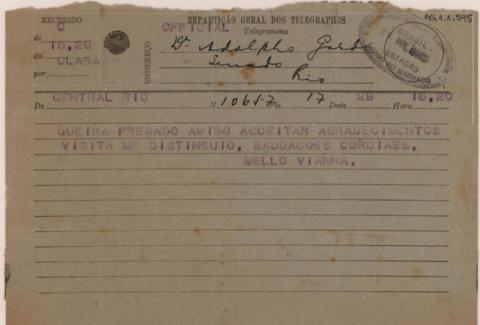 AG.1.1.595
RECEBIDO
REPARTIÇÃO GERAL DOS TELEGRAPHOS
C
OFFICIAL
Telegramma
de 16,20
de CLARA
por
ENDEREÇO
Dr Adolpho Gordo
Senado
Rio
BRASIL
ESTAÇÃO
De CENTRAL RIO N. 10657 Pls. 17 Data 29 Hora 16,20
QUEIRA PRESADO AMIGO ACCEITAR AGRADECIMENTOS
VISITA ME DISTINGUIO, SAUDACOES CORDIAES,
MELLO VIANNA,